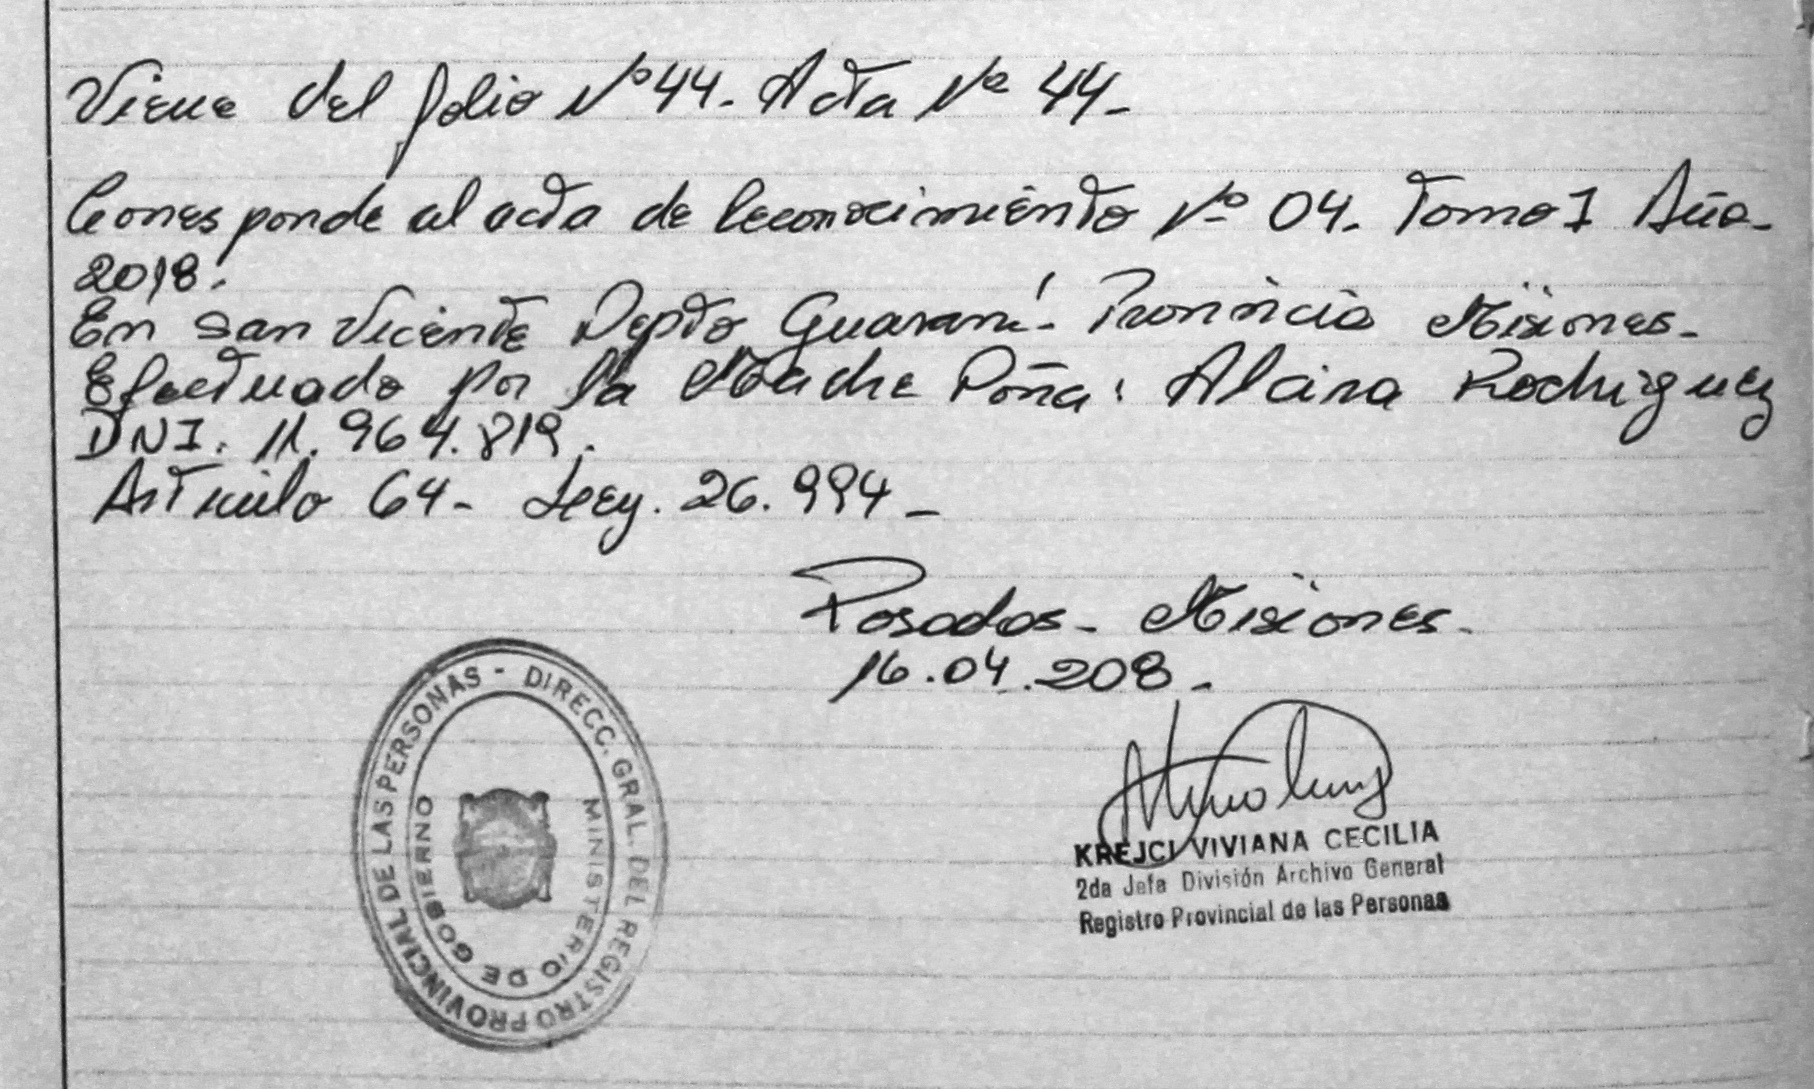 Viene del folio Nº 44. Acta Nº 44-
Corresponde al acta de Reconocimiento Nº 04. Tomo I Año-
2018.
En San Vicente Depto Guaraní- Provincia Misiones-
Efectuado por la Madre Doña: Alcira Rodriguez
DNI. 11.964.819.
Artículo 64- Ley. 26.994-
Posadas- Misiones-
16.04.208-
DIRECC. GRAL. DEL REGISTRO PROVINCIAL DE LAS PERSONAS -
MINISTERIO DE GOBIERNO
KREJCI VIVIANA CECILIA
2da Jefa División Archivo General
Registro Provincial de las Personas